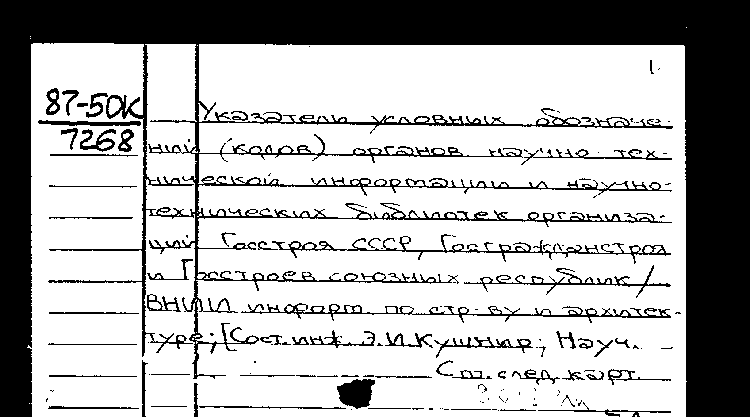 1.
87-50К
7268
Указатель условных обозначе-
ний (кодов) органов научно-тех-
нической информации и научно-
технических библиотек организа-
ций Госстроя СССР, Госгражданстроя
и Госстроев союзных республик /
ВНИИ информ. по стр-ву и архитек-
туре; [Сост. инж. Э.И.Кушнир; Науч.
См. след. карт.